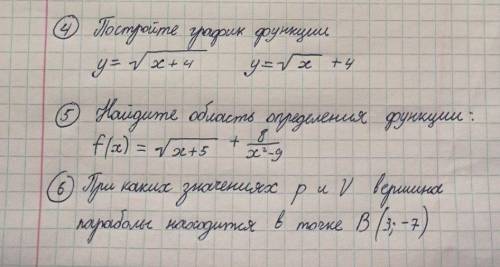 ④ Постройте график функции
y = √x+4   y = √x + 4
⑤ Найдите область определения функции:
f(x) = √x+5 + 8/x²-9
⑥ При каких значениях p и V вершина
параболы находится в точке B(3; -7)